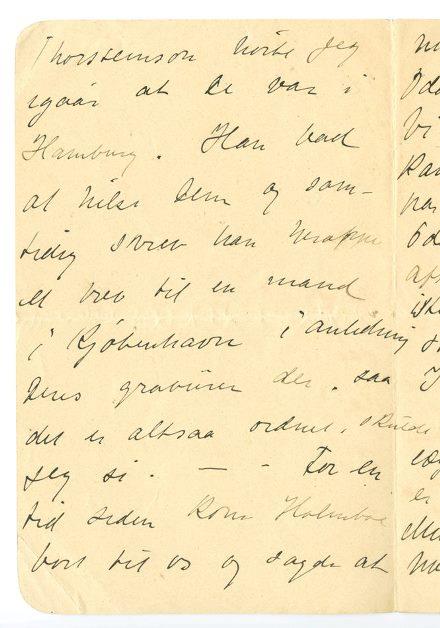 Thorsteinson hörte Jeg
igaar at De var i
Hamburg. Han bad
at hilse Dem og sam-
tidig skrev han
et brev til en mand
i Kjöbenhavn i anledning
Deres gravürer der, saa
det er altsaa ordnet, skulde
Jeg si. — - For en
tid siden kom Holmboe
bort til os og sagde at